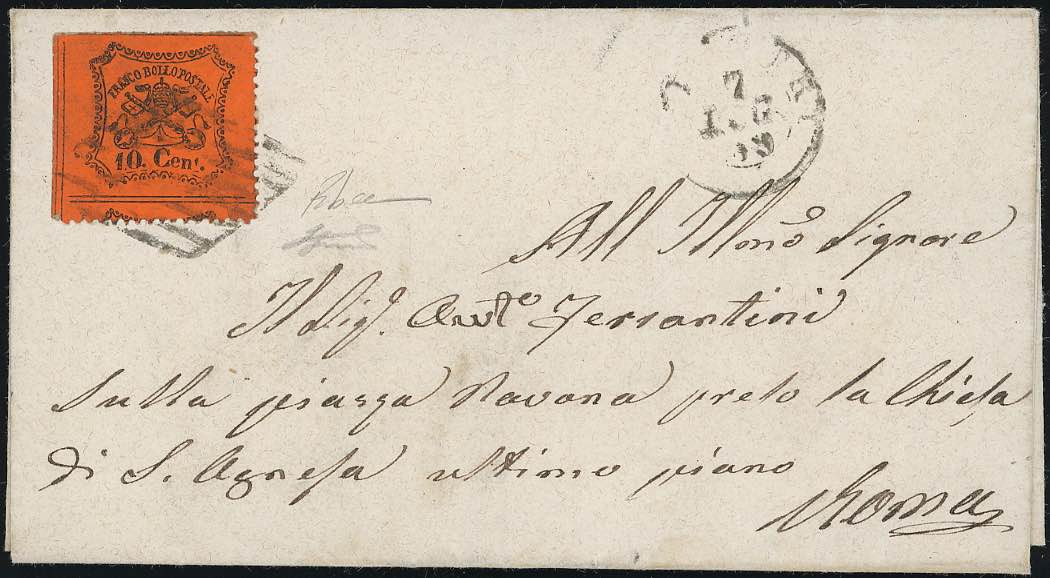 FRANCO BOLLO POSTALE
10. Cent.
7
LUG
69
All Illmo Signore
Il Sigr. Antº Ferrantini
Sulla piazza Navona preso la Chiesa
di S. Agnesa ultimo piano
Roma